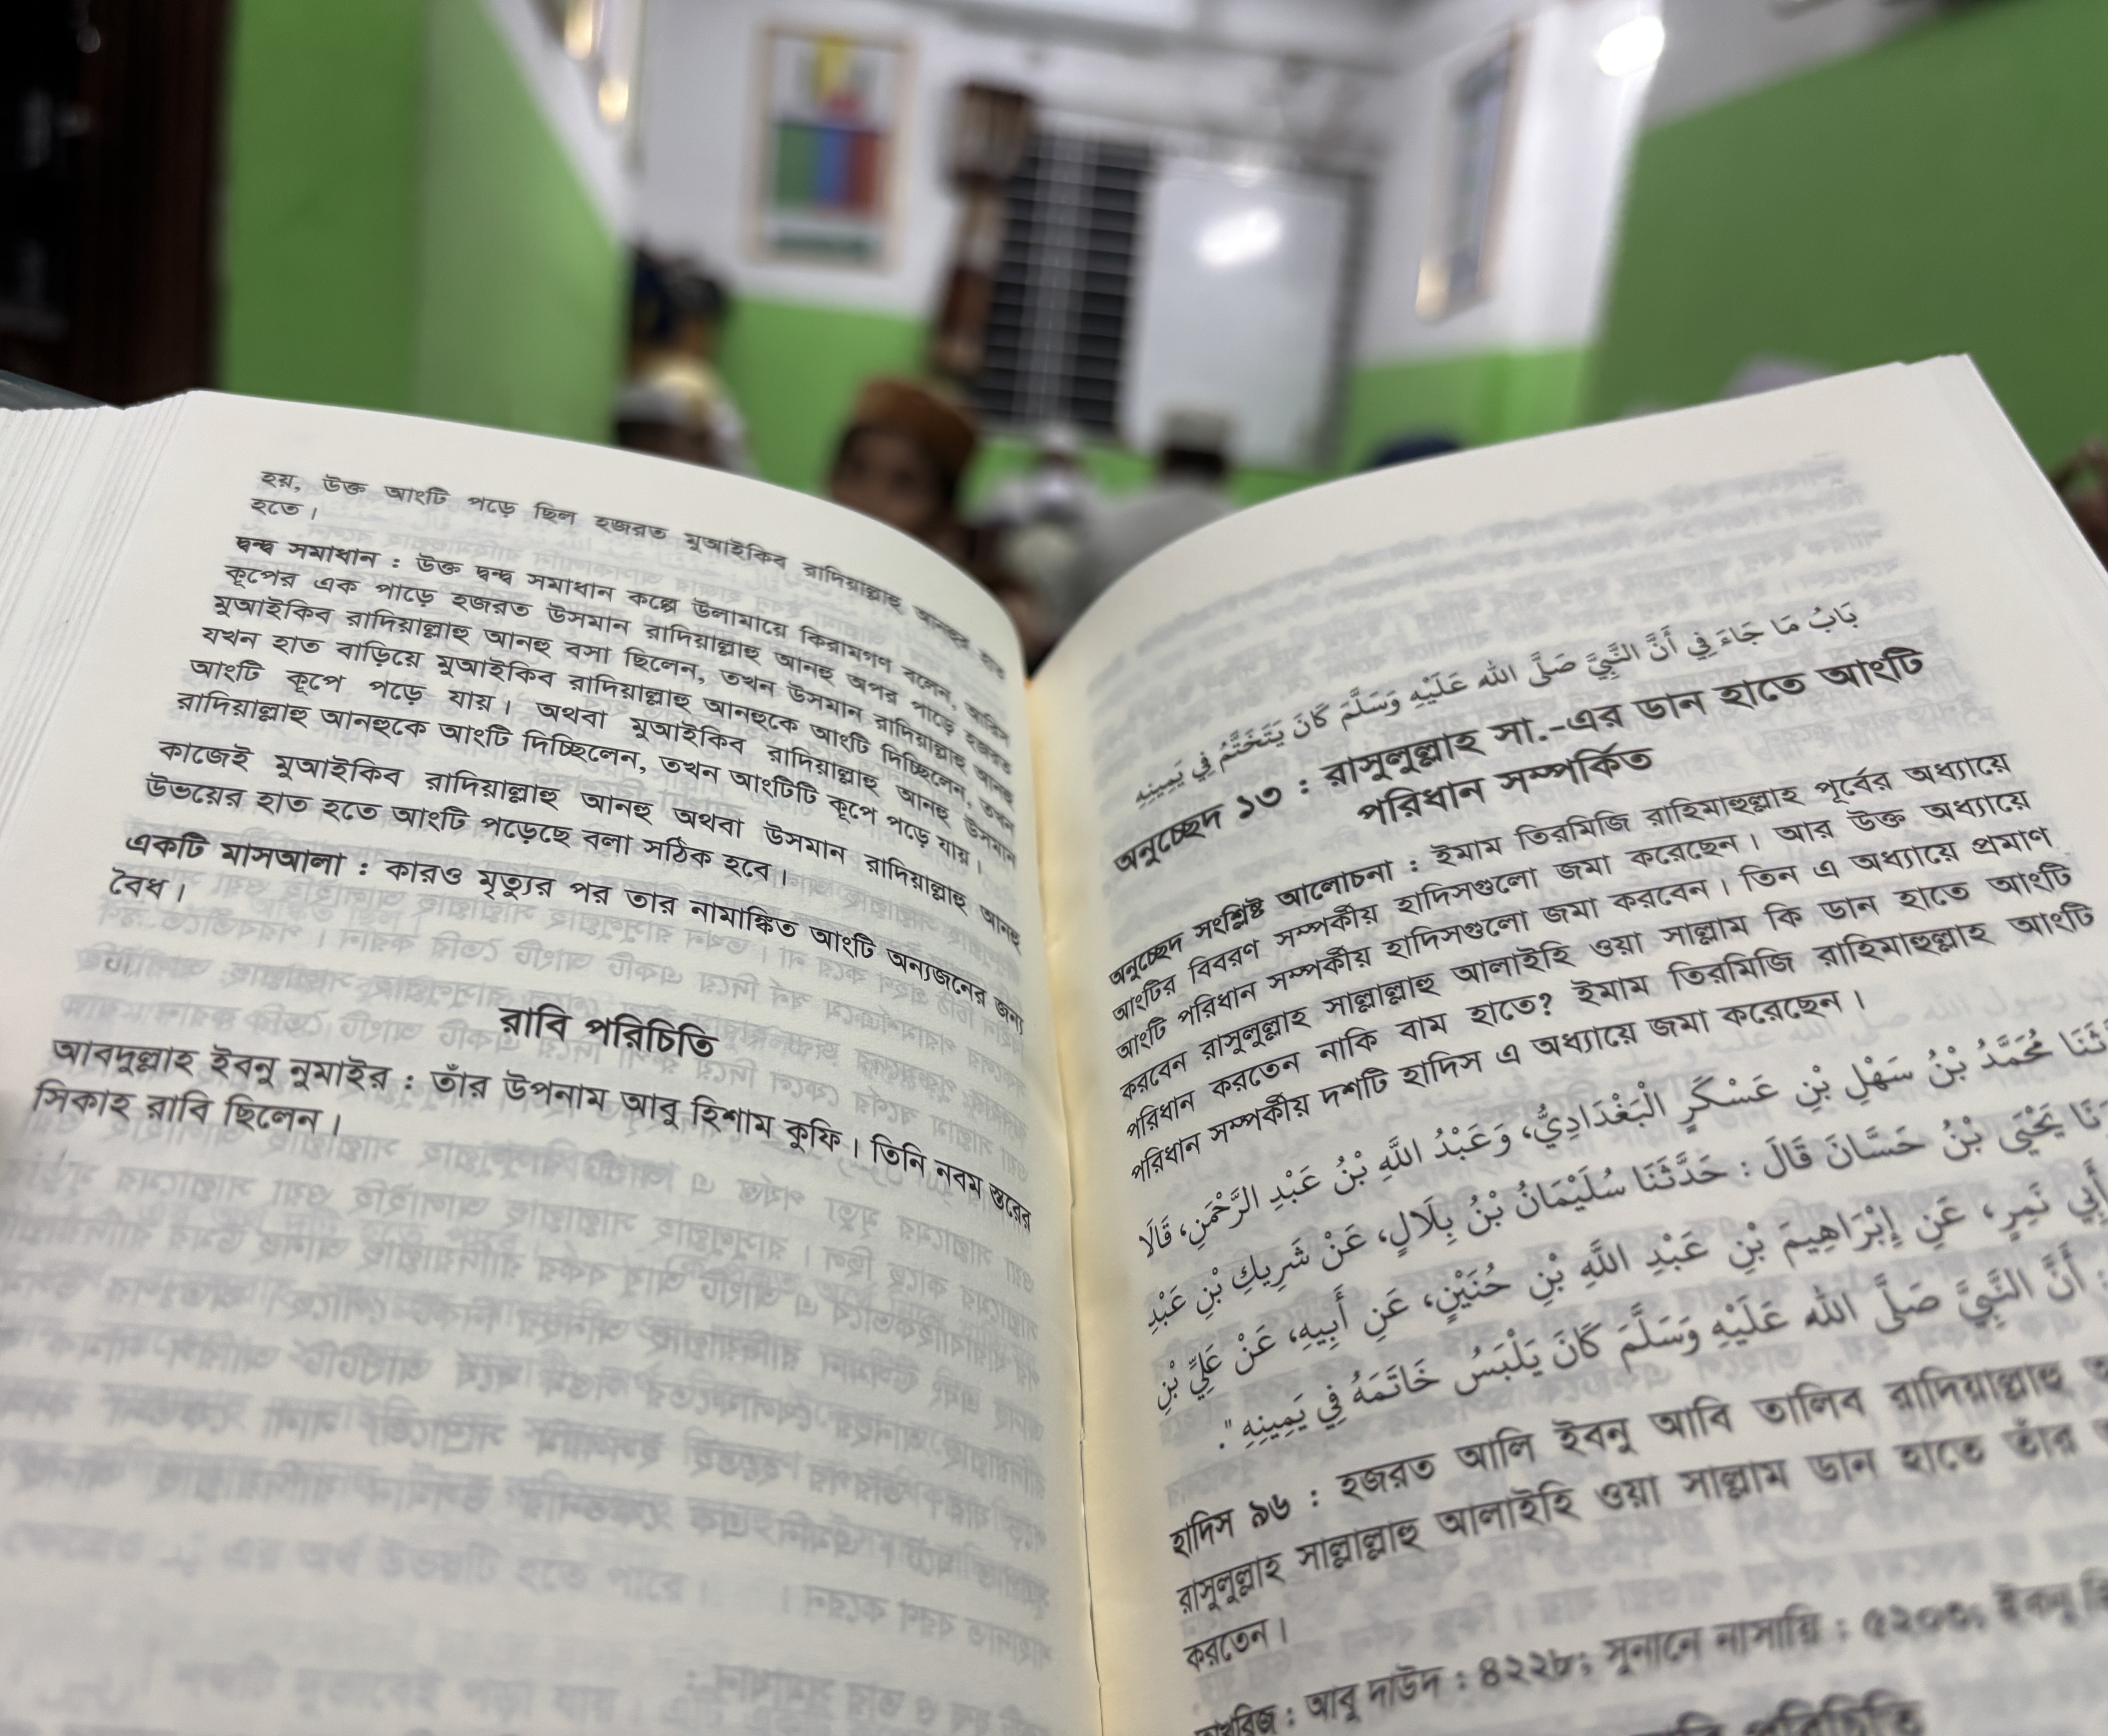 হয়, উক্ত আংটি পড়ে ছিল হজরত মুআইকিব রাদিয়াল্লাহু আনহুর হাত
হতে।
দ্বন্দ্ব সমাধান : উক্ত দ্বন্দ্ব সমাধান কল্পে উলামায়ে কিরামগণ বলেন, আরিস
কূপের এক পাড়ে হজরত উসমান রাদিয়াল্লাহু আনহু অপর পাড়ে হজরত
মুআইকিব রাদিয়াল্লাহু আনহু বসা ছিলেন, তখন উসমান রাদিয়াল্লাহু আনহু
যখন হাত বাড়িয়ে মুআইকিব রাদিয়াল্লাহু আনহুকে আংটি দিচ্ছিলেন, তখন
আংটি কূপে পড়ে যায়। অথবা মুআইকিব রাদিয়াল্লাহু আনহু উসমান
রাদিয়াল্লাহু আনহুকে আংটি দিচ্ছিলেন, তখন আংটিটি কূপে পড়ে যায়।
কাজেই মুআইকিব রাদিয়াল্লাহু আনহু অথবা উসমান রাদিয়াল্লাহু আনহু
উভয়ের হাত হতে আংটি পড়েছে বলা সঠিক হবে।
একটি মাসআলা : কারও মৃত্যুর পর তার নামাঙ্কিত আংটি অন্যজনের জন্য
বৈধ।
রাবি পরিচিতি
আবদুল্লাহ ইবনু নুমাইর : তাঁর উপনাম আবু হিশাম কুফি। তিনি নবম স্তরের
সিকাহ রাবি ছিলেন।
بَابُ مَا جَاءَ فِي أَنَّ النَّبِيَّ صَلَّى الله عَلَيْهِ وَسَلَّمَ كَانَ يَتَخَتَّمُ فِي يَمِينِهِ
অনুচ্ছেদ ১৩ : রাসুলুল্লাহ সা.-এর ডান হাতে আংটি
পরিধান সম্পর্কিত
অনুচ্ছেদ সংশ্লিষ্ট আলোচনা : ইমাম তিরমিজি রাহিমাহুল্লাহ পূর্বের অধ্যায়ে
আংটির বিবরণ সম্পর্কীয় হাদিসগুলো জমা করেছেন। আর উক্ত অধ্যায়ে
আংটি পরিধান সম্পর্কীয় হাদিসগুলো জমা করবেন। তিন এ অধ্যায়ে প্রমাণ
করবেন রাসুলুল্লাহ সাল্লাল্লাহু আলাইহি ওয়া সাল্লাম কি ডান হাতে আংটি
পরিধান করতেন নাকি বাম হাতে? ইমাম তিরমিজি রাহিমাহুল্লাহ আংটি
পরিধান সম্পর্কীয় দশটি হাদিস এ অধ্যায়ে জমা করেছেন।
مُحَمَّدُ بْنُ سَهْلِ بْنِ عَسْكَرٍ الْبَغْدَادِيُّ، وَعَبْدُ اللَّهِ بْنُ عَبْدِ الرَّحْمَنِ، قَالَا
يَحْيَى بْنُ حَسَّانَ قَالَ : حَدَّثَنَا سُلَيْمَانُ بْنُ بِلَالٍ، عَنْ شَرِيكِ بْنِ عَبْدِ
أَبِي نَمِرٍ، عَنِ إِبْرَاهِيمَ بْنِ عَبْدِ اللَّهِ بْنِ حُنَيْنٍ، عَنِ أَبِيهِ، عَنْ عَلِيِّ بْنِ
: أَنَّ النَّبِيَّ صَلَّى الله عَلَيْهِ وَسَلَّمَ كَانَ يَلْبَسُ خَاتَمَهُ فِي يَمِينِهِ ".
হাদিস ৯৬ : হজরত আলি ইবনু আবি তালিব রাদিয়াল্লাহু
রাসুলুল্লাহ সাল্লাল্লাহু আলাইহি ওয়া সাল্লাম ডান হাতে তাঁর
করতেন।
তাখরিজ : আবু দাউদ : ৪২২৮; সুনানে নাসায়ি : ৫২০৩; ইবনু
পরিচিতি